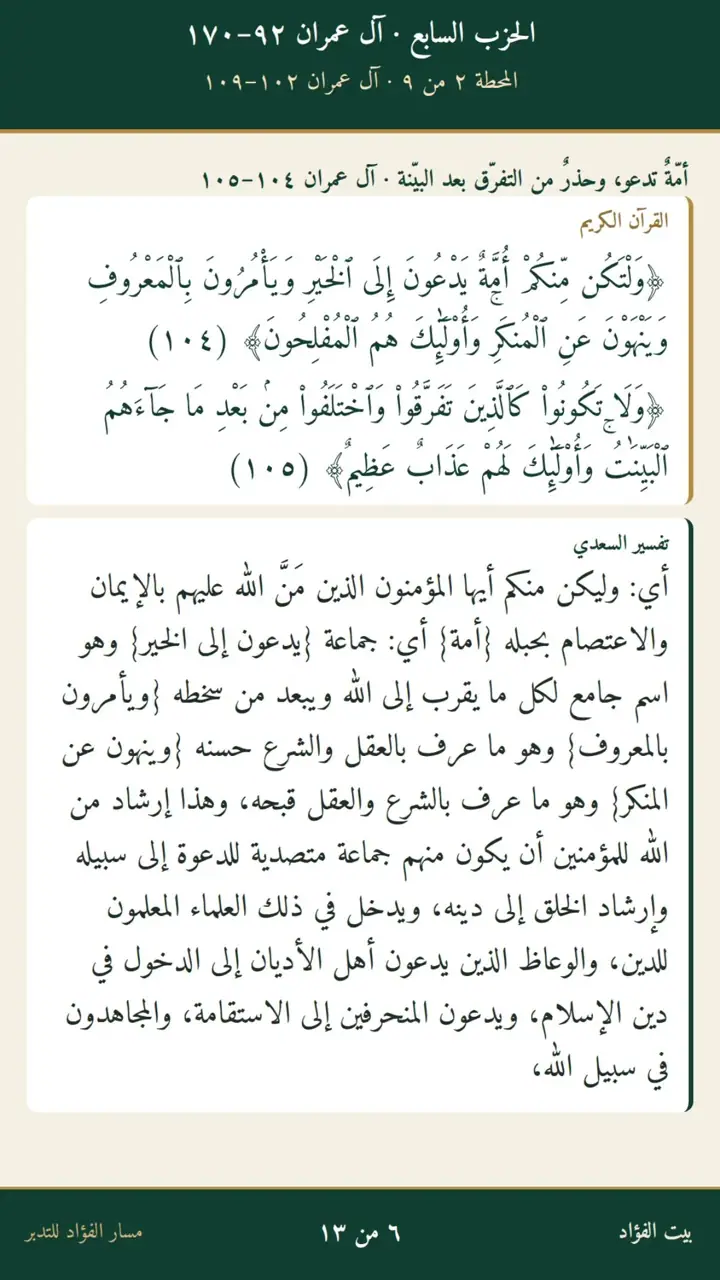 الحزب السابع · آل عمران ٩٢-١٧٠
المحطة ٢ من ٩ · آل عمران ١٠٢-١٠٩
أمّةٌ تدعو، وحذرٌ من التفرّق بعد البيّنة · آل عمران ١٠٤-١٠٥
القرآن الكريم
﴿وَلْتَكُن مِّنكُمْ أُمَّةٌ يَدْعُونَ إِلَى ٱلْخَيْرِ وَيَأْمُرُونَ بِٱلْمَعْرُوفِ
وَيَنْهَوْنَ عَنِ ٱلْمُنكَرِ ۚ وَأُو۟لَـٰٓئِكَ هُمُ ٱلْمُفْلِحُونَ﴾ (١٠٤)
﴿وَلَا تَكُونُوا۟ كَٱلَّذِينَ تَفَرَّقُوا۟ وَٱخْتَلَفُوا۟ مِنۢ بَعْدِ مَا جَآءَهُمُ
ٱلْبَيِّنَـٰتُ ۚ وَأُو۟لَـٰٓئِكَ لَهُمْ عَذَابٌ عَظِيمٌ﴾ (١٠٥)
تفسير السعدي
أي: وليكن منكم أيها المؤمنون الذين مَنَّ الله عليهم بالإيمان
والاعتصام بحبله {أمة} أي: جماعة {يدعون إلى الخير} وهو
اسم جامع لكل ما يقرب إلى الله ويبعد من سخطه {ويأمرون
بالمعروف} وهو ما عرف بالعقل والشرع حسنه {وينهون عن
المنكر} وهو ما عرف بالشرع والعقل قبحه، وهذا إرشاد من
الله للمؤمنين أن يكون منهم جماعة متصدية للدعوة إلى سبيله
وإرشاد الخلق إلى دينه، ويدخل في ذلك العلماء المعلمون
للدين، والوعاظ الذين يدعون أهل الأديان إلى الدخول في
دين الإسلام، ويدعون المنحرفين إلى الاستقامة، والمجاهدون
في سبيل الله،
بيت الفؤاد
٦ من ١٣
مسار الفؤاد للتدبر